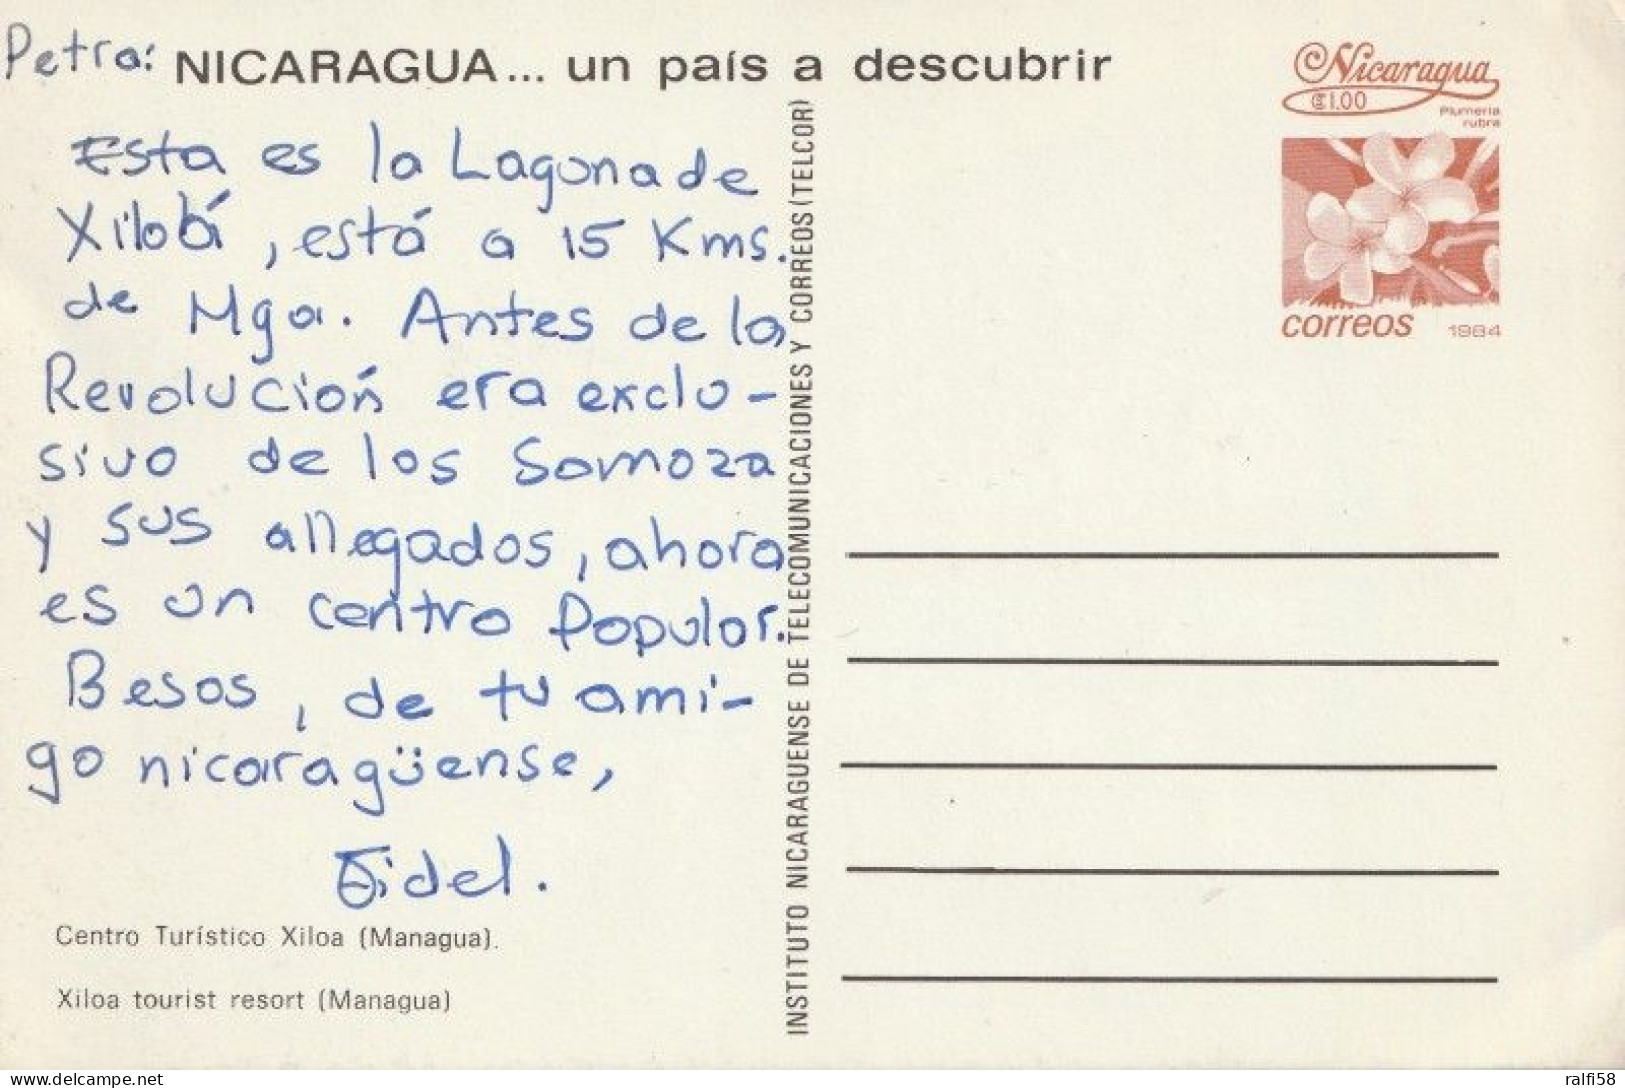 Petra:
NICARAGUA... un país a descubrir
Esta es la Laguna de
Xilobá, está a 15 Kms.
de Mga. Antes de la
Revolución era exclu-
sivo de los Somoza
y sus allegados, ahora
es un centro Popular.
Besos, de tu ami-
go nicaragüense,
Fidel.
Centro Turístico Xiloa (Managua).
Xiloa tourist resort (Managua)
INSTITUTO NICARAGUENSE DE TELECOMUNICACIONES Y CORREOS (TELCOR)
Nicaragua
₡1.00
Plumeria
rubra
correos 1984
delcampe.net
ralfi58